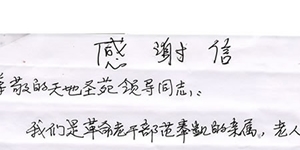 感谢信
敬的天地圣苑领导同志：
我们是革命老干部范奉凯的亲属，老人